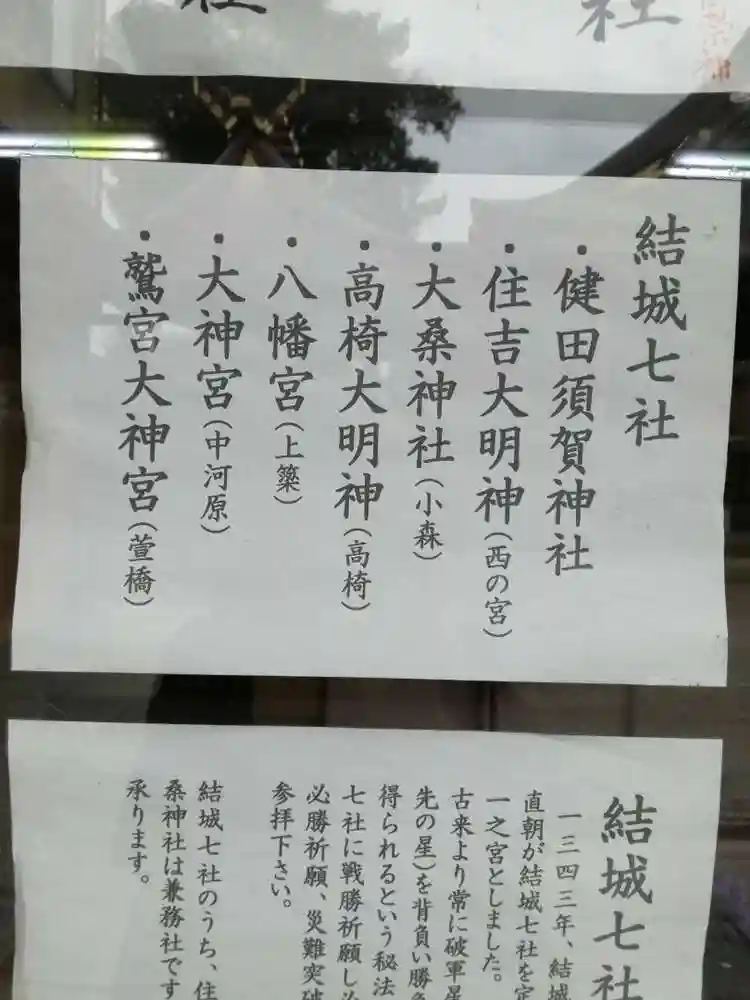 社
社
結城七社
・健田須賀神社
・住吉大明神(西の宮)
・大桑神社(小森)
・高椅大明神(高椅)
・八幡宮(上簗)
・大神宮(中河原)
・鷲宮大神宮(萱橋)
結城七社
一三四三年、結城
直朝が結城七社を定
一之宮としました。
古来より常に破軍星
先の星)を背負い勝負
得られるという秘法
七社に戦勝祈願し
必勝祈願、災難突破
参拝下さい。
結城七社のうち、住
桑神社は兼務社です
承ります。